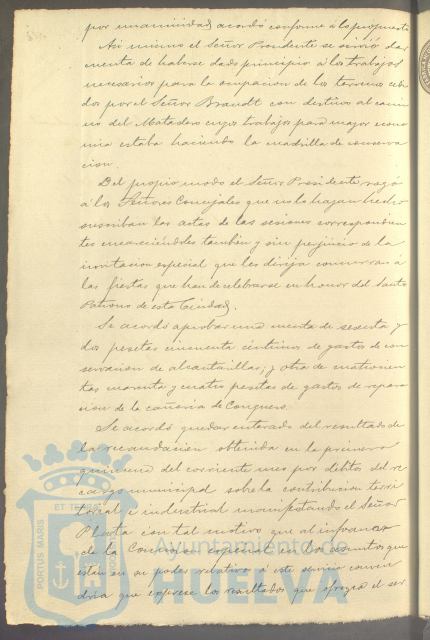 por unanimidad acordó conforme á lo propuesto
Asi mismo el Señor Presidente se sirvió dar
cuenta de haberse dado principio á los trabajos
necesarios para la ocupacion de los terrenos cedi
dos por el Señor Brandt con destino al cami
no del Matadero cuyos trabajos para mayor econo
mia estaba haciendo la cuadrilla de conserva
cion.
Del propio modo el Señor Presidente rogó
á los Señores Concejales que no lo hayan hecho
suscriban las actas de las sesiones correspondien
tes encareciéndoles tambien y sin perjuicio de la
invitacion especial que les dirija concurran á
las fiestas que han de celebrarse en honor del Santo
Patrono de esta Ciudad.
Se acordó aprobar una cuenta de sesenta y
dos pesetas cincuenta céntimos de gastos de con
servacion de alcantarillas; y otra de
cuarenta y cuatro pesetas de gastos de repara
cion de la cañeria de Conquero.
Se acordó quedar enterado del resultado de
la recaudacion obtenida en la primera
quincena del corriente mes por debitos del re
cargo municipal sobre la contribucion terri
torial é industrial manifestando el Señor
con tal motivo que al informar
de la Comision especial en los asuntos que
estan en su poder relativo á este servicio conven
dria que exprese los resultados que ofrezca el ser
PORTUS MARIS ET TERRAE
Ayuntamiento de
HUELVA